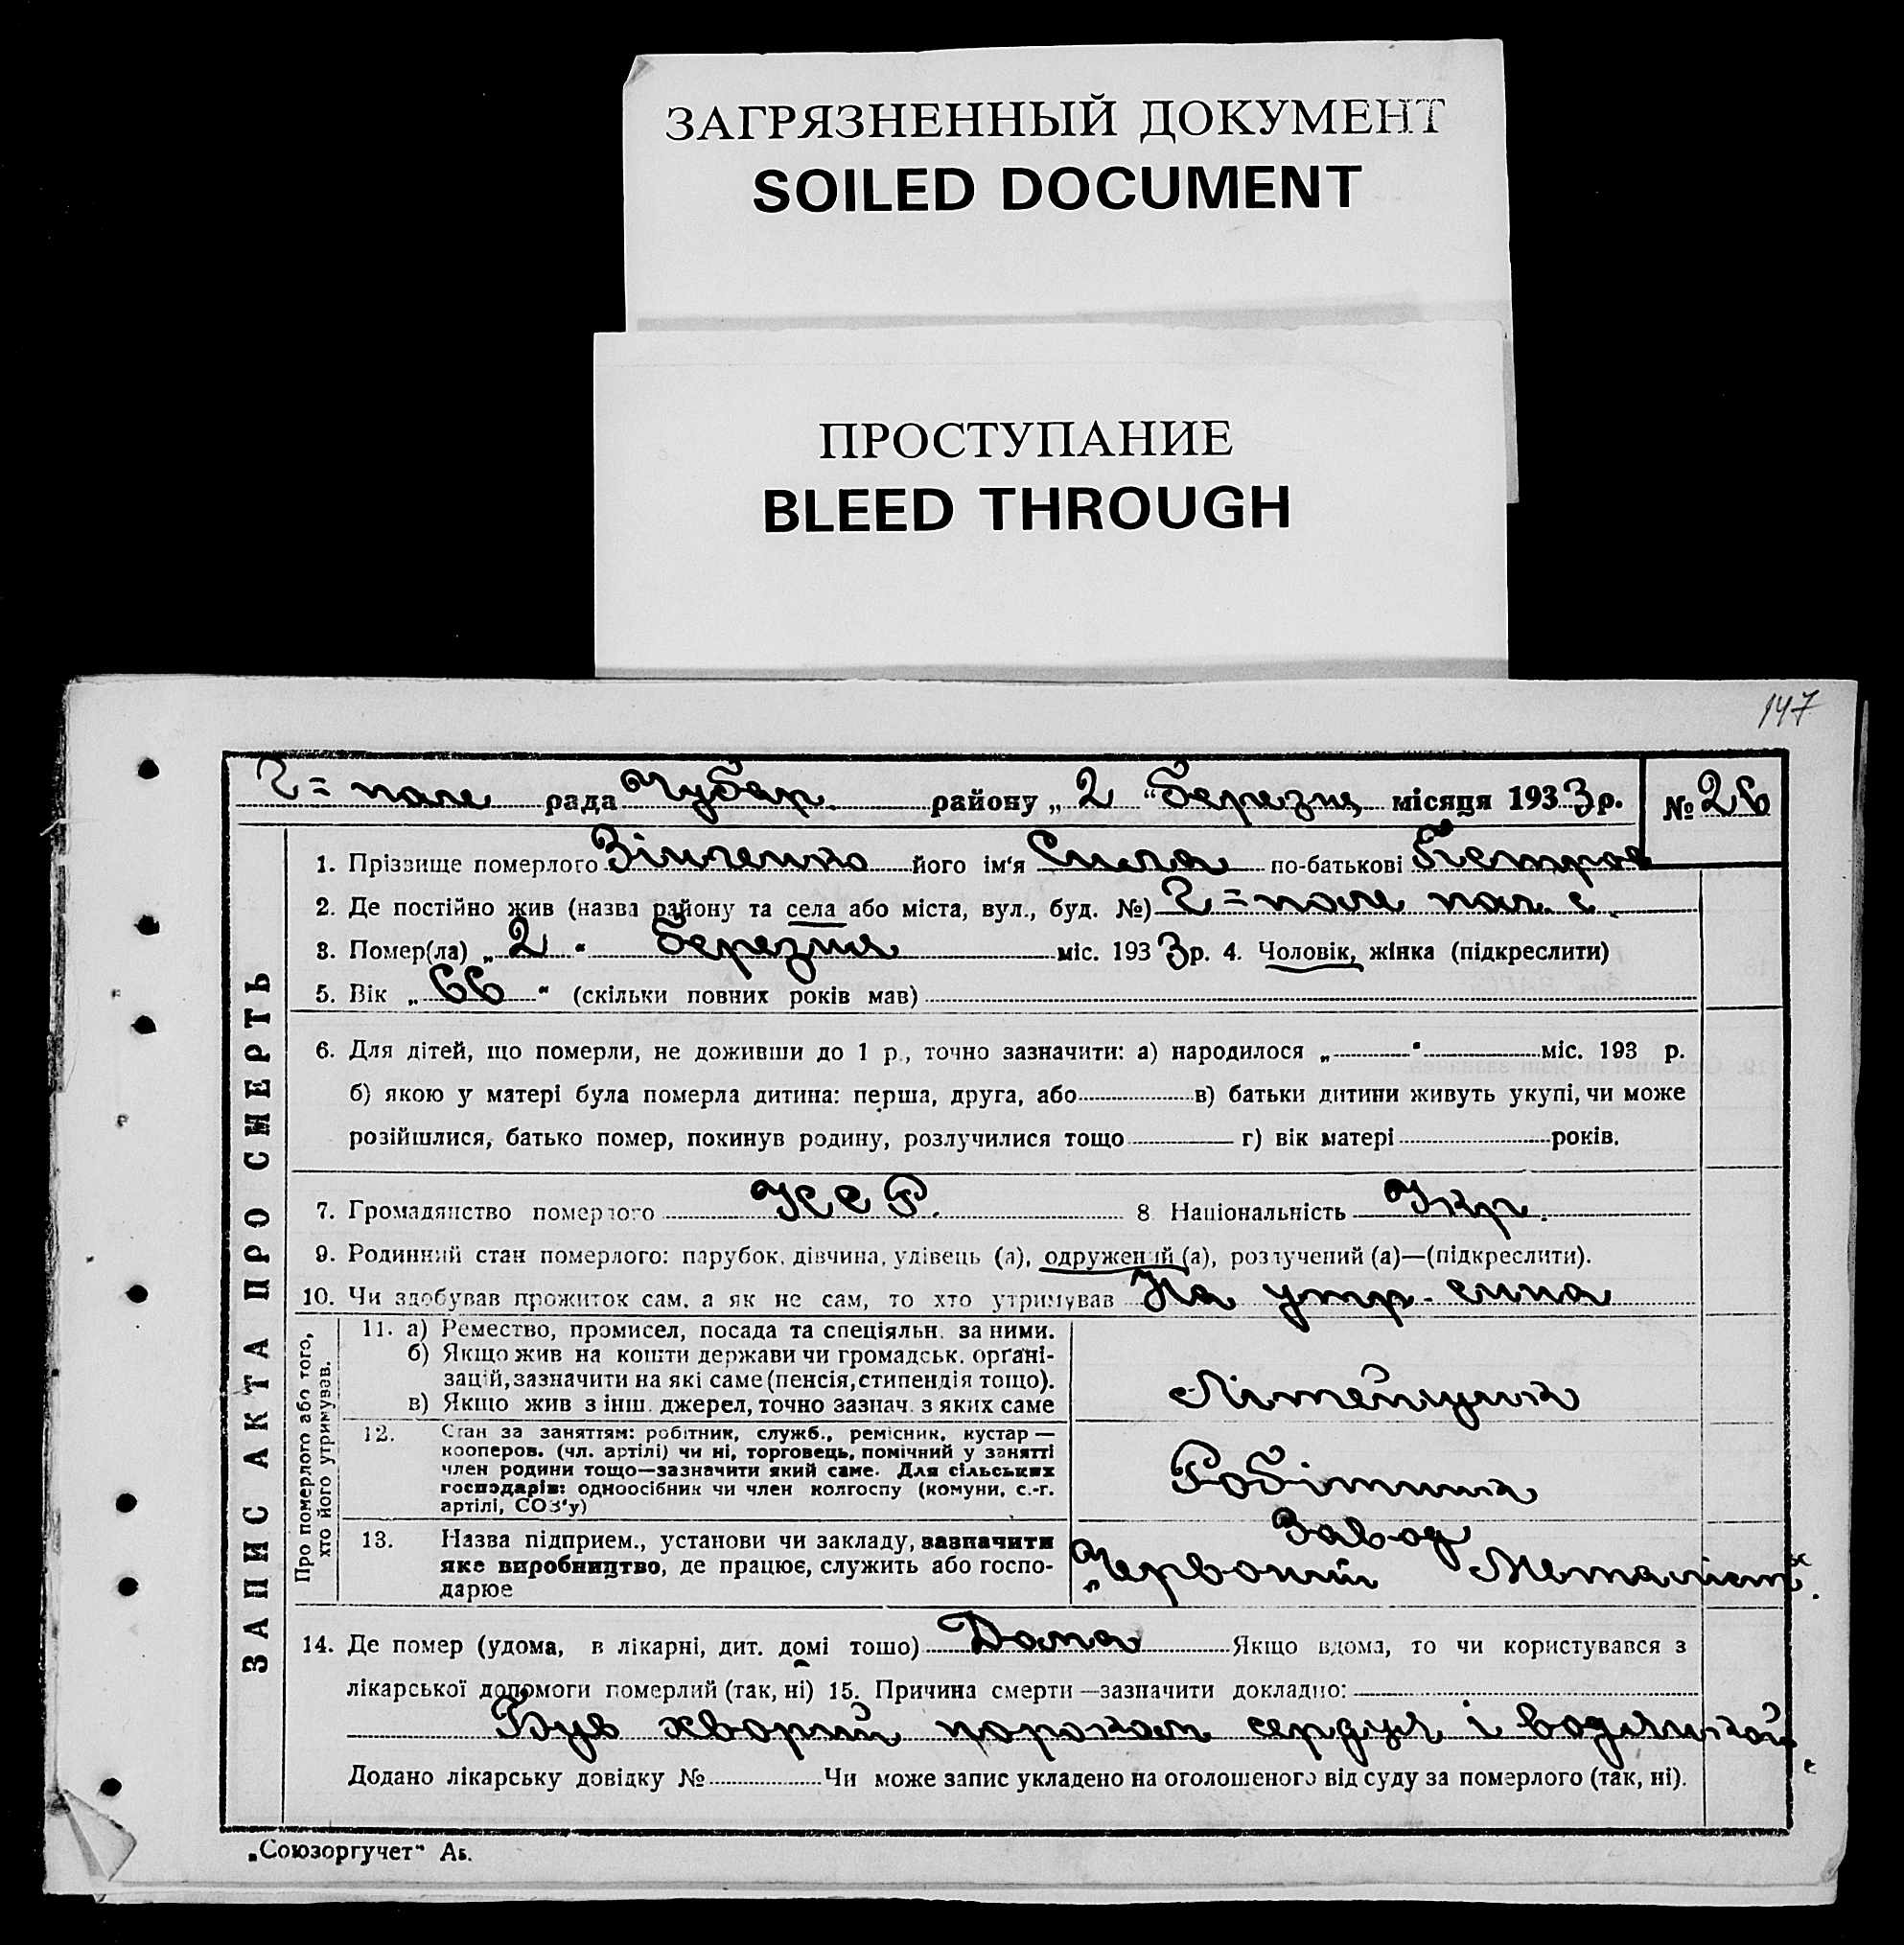 ЗАГРЯЗНЕННЫЙ ДОКУМЕНТ
SOILED DOCUMENT
ПРОСТУПАНИЕ
BLEED THROUGH
147
Г=поле рада Чубар. району „ 2 “ березня місяця 1933 р. № 26
ЗАПИС АКТА ПРО СМЕРТЬ
1. Прізвище померлого Зінченко його ім'я Сила по-батькові Петров
2. Де постійно жив (назва району та села або міста, вул., буд. №) Г=поле
3. Помер(ла) „ 2 “ березня міс. 1933 р. 4. Чоловік, жінка (підкреслити)
5. Вік „ 66 “ (скільки повних років мав)
6. Для дітей, що померли, не доживши до 1 р., точно зазначити: а) народилося „ “ міс. 193 р.
б) якою у матері була померла дитина: перша, друга, або в) батьки дитини живуть укупі, чи може
розійшлися, батько помер, покинув родину, розлучилися тощо г) вік матері років.
7. Громадянство померлого УССР. 8 Національність Укр.
9. Родинний стан померлого: парубок, дівчина, удівець (а), одружений (а), розлучений (а)—(підкреслити).
10. Чи здобував прожиток сам, а як не сам, то хто утримував На утр. сина
Про померлого або того,
хто його утримував.
11. а) Ремество, промисел, посада та спеціяльн. за ними.
б) Якщо жив на кошти держави чи громадськ. органі-
зацій, зазначити на які саме (пенсія, стипендія тощо).
в) Якщо жив з інш. джерел, точно зазнач. з яких саме
Літейщик
12. Стан за заняттям: робітник, служб., ремісник, кустар —
кооперов. (чл. артілі) чи ні, торговець, помічний у занятті
член родини тощо—зазначити який саме. Для сільських
господарів: одноосібник чи член колгоспу (комуни, с.-г.
артілі, СОЗ'у)
Робітник
13. Назва підприєм., установи чи закладу, зазначити
яке виробництво, де працює, служить або госпо-
дарює
Завод
„Червоний Металіст“.
14. Де помер (удома, в лікарні, дит. домі тощо) Дома Якщо вдома, то чи користувався з
лікарської допомоги померлий (так, ні) 15. Причина смерти—зазначити докладно:
Був хворий пороком сердця і водянкой.
Додано лікарську довідку № Чи може запис укладено на оголошеного від суду за померлого (так, ні).
„Союзоргучет“ Аб.